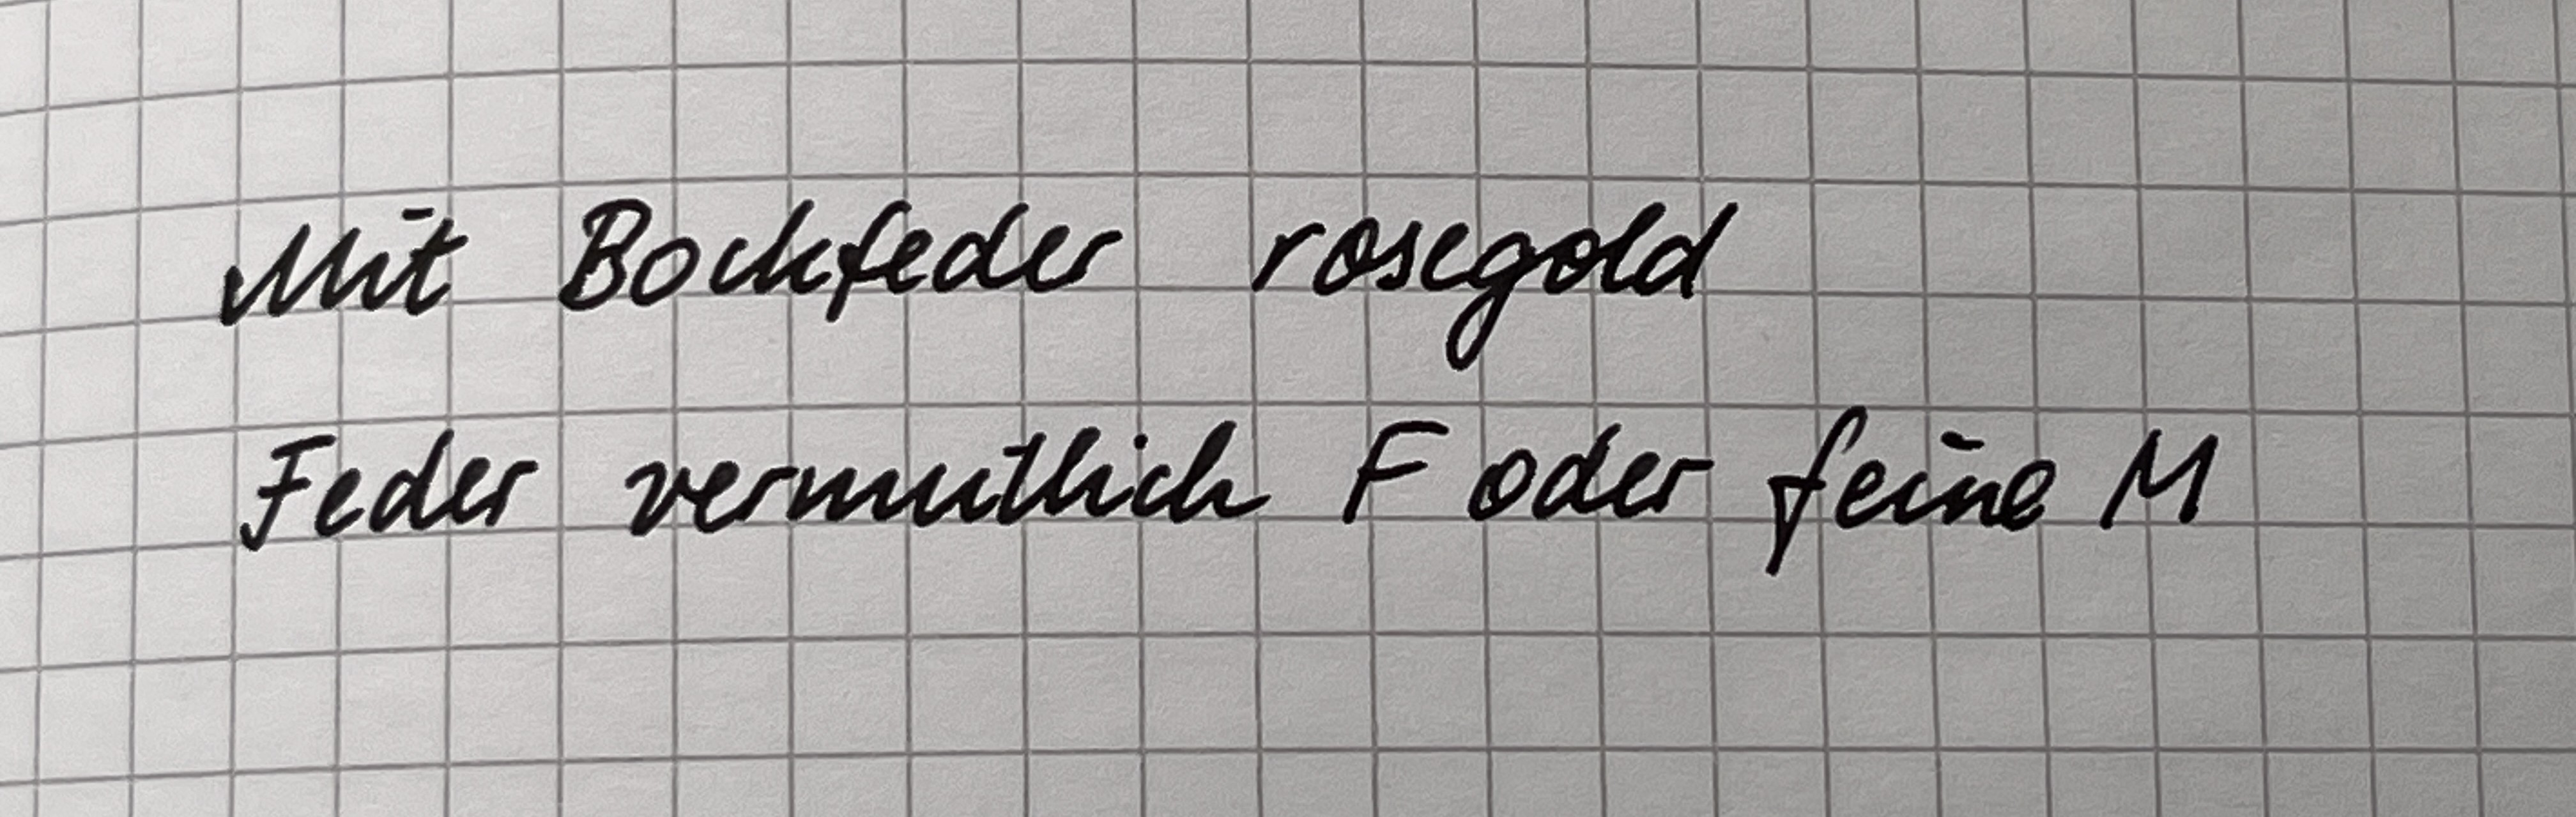 Mit Bockfeder rosegold
Feder vermutlich F oder feine M